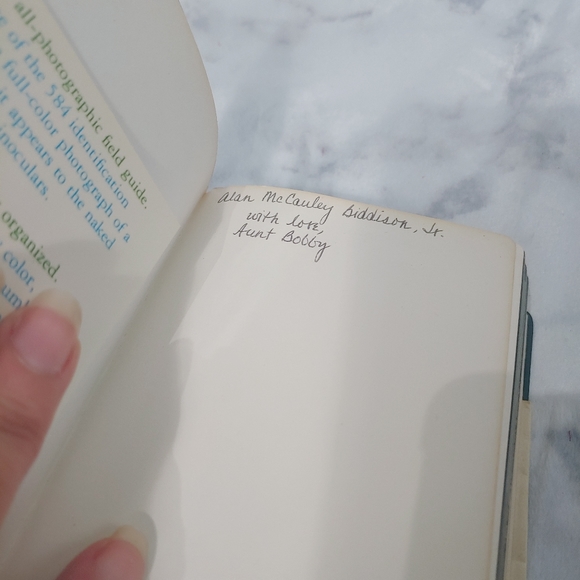 all-photographic field guide.
e of the 584 identification
full-color photograph of a
it appears to the naked
inoculars.
organized.
color,
umb
Alan McCauley Biddison, Jr.
with love,
Aunt Bobby